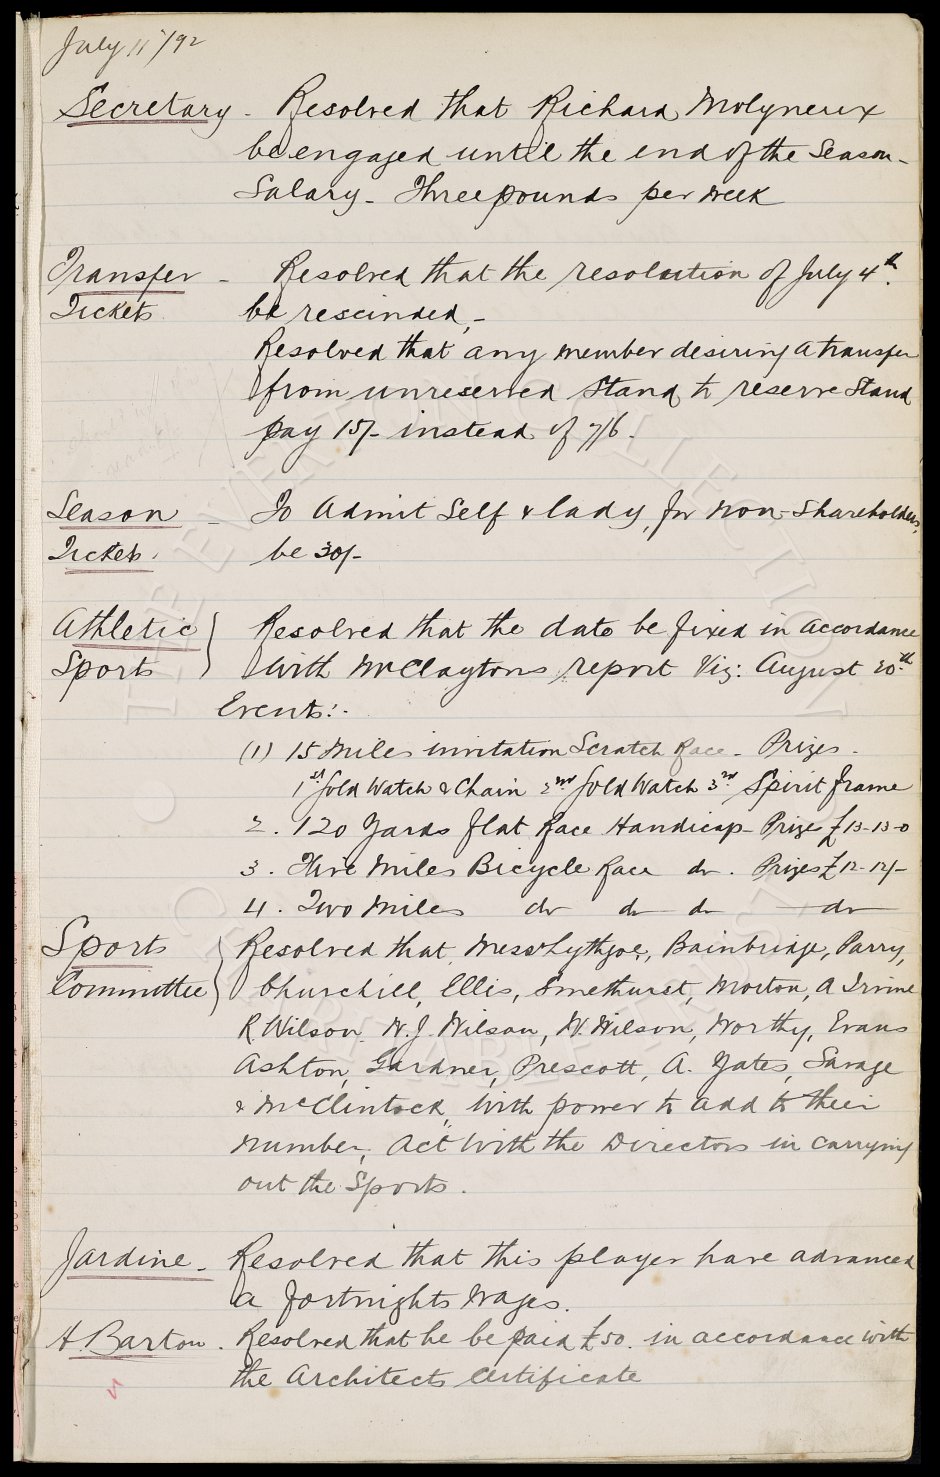 July 11th/92
Secretary - Resolved that Richard Molyneux
be engaged until the end of the Season -
Salary - Three pounds per week
Transfer - Resolved that the resolution of July 4th.
Tickets be rescinded, -
Resolved that any member desiring a transfer
from unreserved Stand to reserve Stand
pay 15/- instead of 7/6.
Season - To Admit Self & lady, for Non-Shareholders,
Tickets. be 30/-
Athletic } Resolved that the date be fixed in accordance
Sports with Mr Claytons report Viz: August 20th
Events:-
(1) 15 Miles invitation Scratch Race - Prizes -
1st Gold Watch & Chain 2nd Gold Watch 3rd Spirit Frame
2. 120 Yards flat Race Handicap - Prizes £13-13-0
3. Five Miles Bicycle Race do. Prizes £12-12/-
4. Two Miles do do do do
Sports } Resolved that Messrs Lythgoe, Bainbridge, Parry,
Committee Churchill, Ellis, Smethurst, Morton, A Irvine
R. Wilson, W. J. Wilson, W. Wilson, Worthy, Evans
Ashton, Gardner, Prescott, A. Yates, Savage
& McClintock, with power to add to their
number, act with the Directors in carrying
out the Sports.
Jardine - Resolved that this player have advanced
a fortnights wages.
H. Barton. Resolved that he be paid £50. in accordance with
the Architects certificate
THE EVERTON COLLECTION